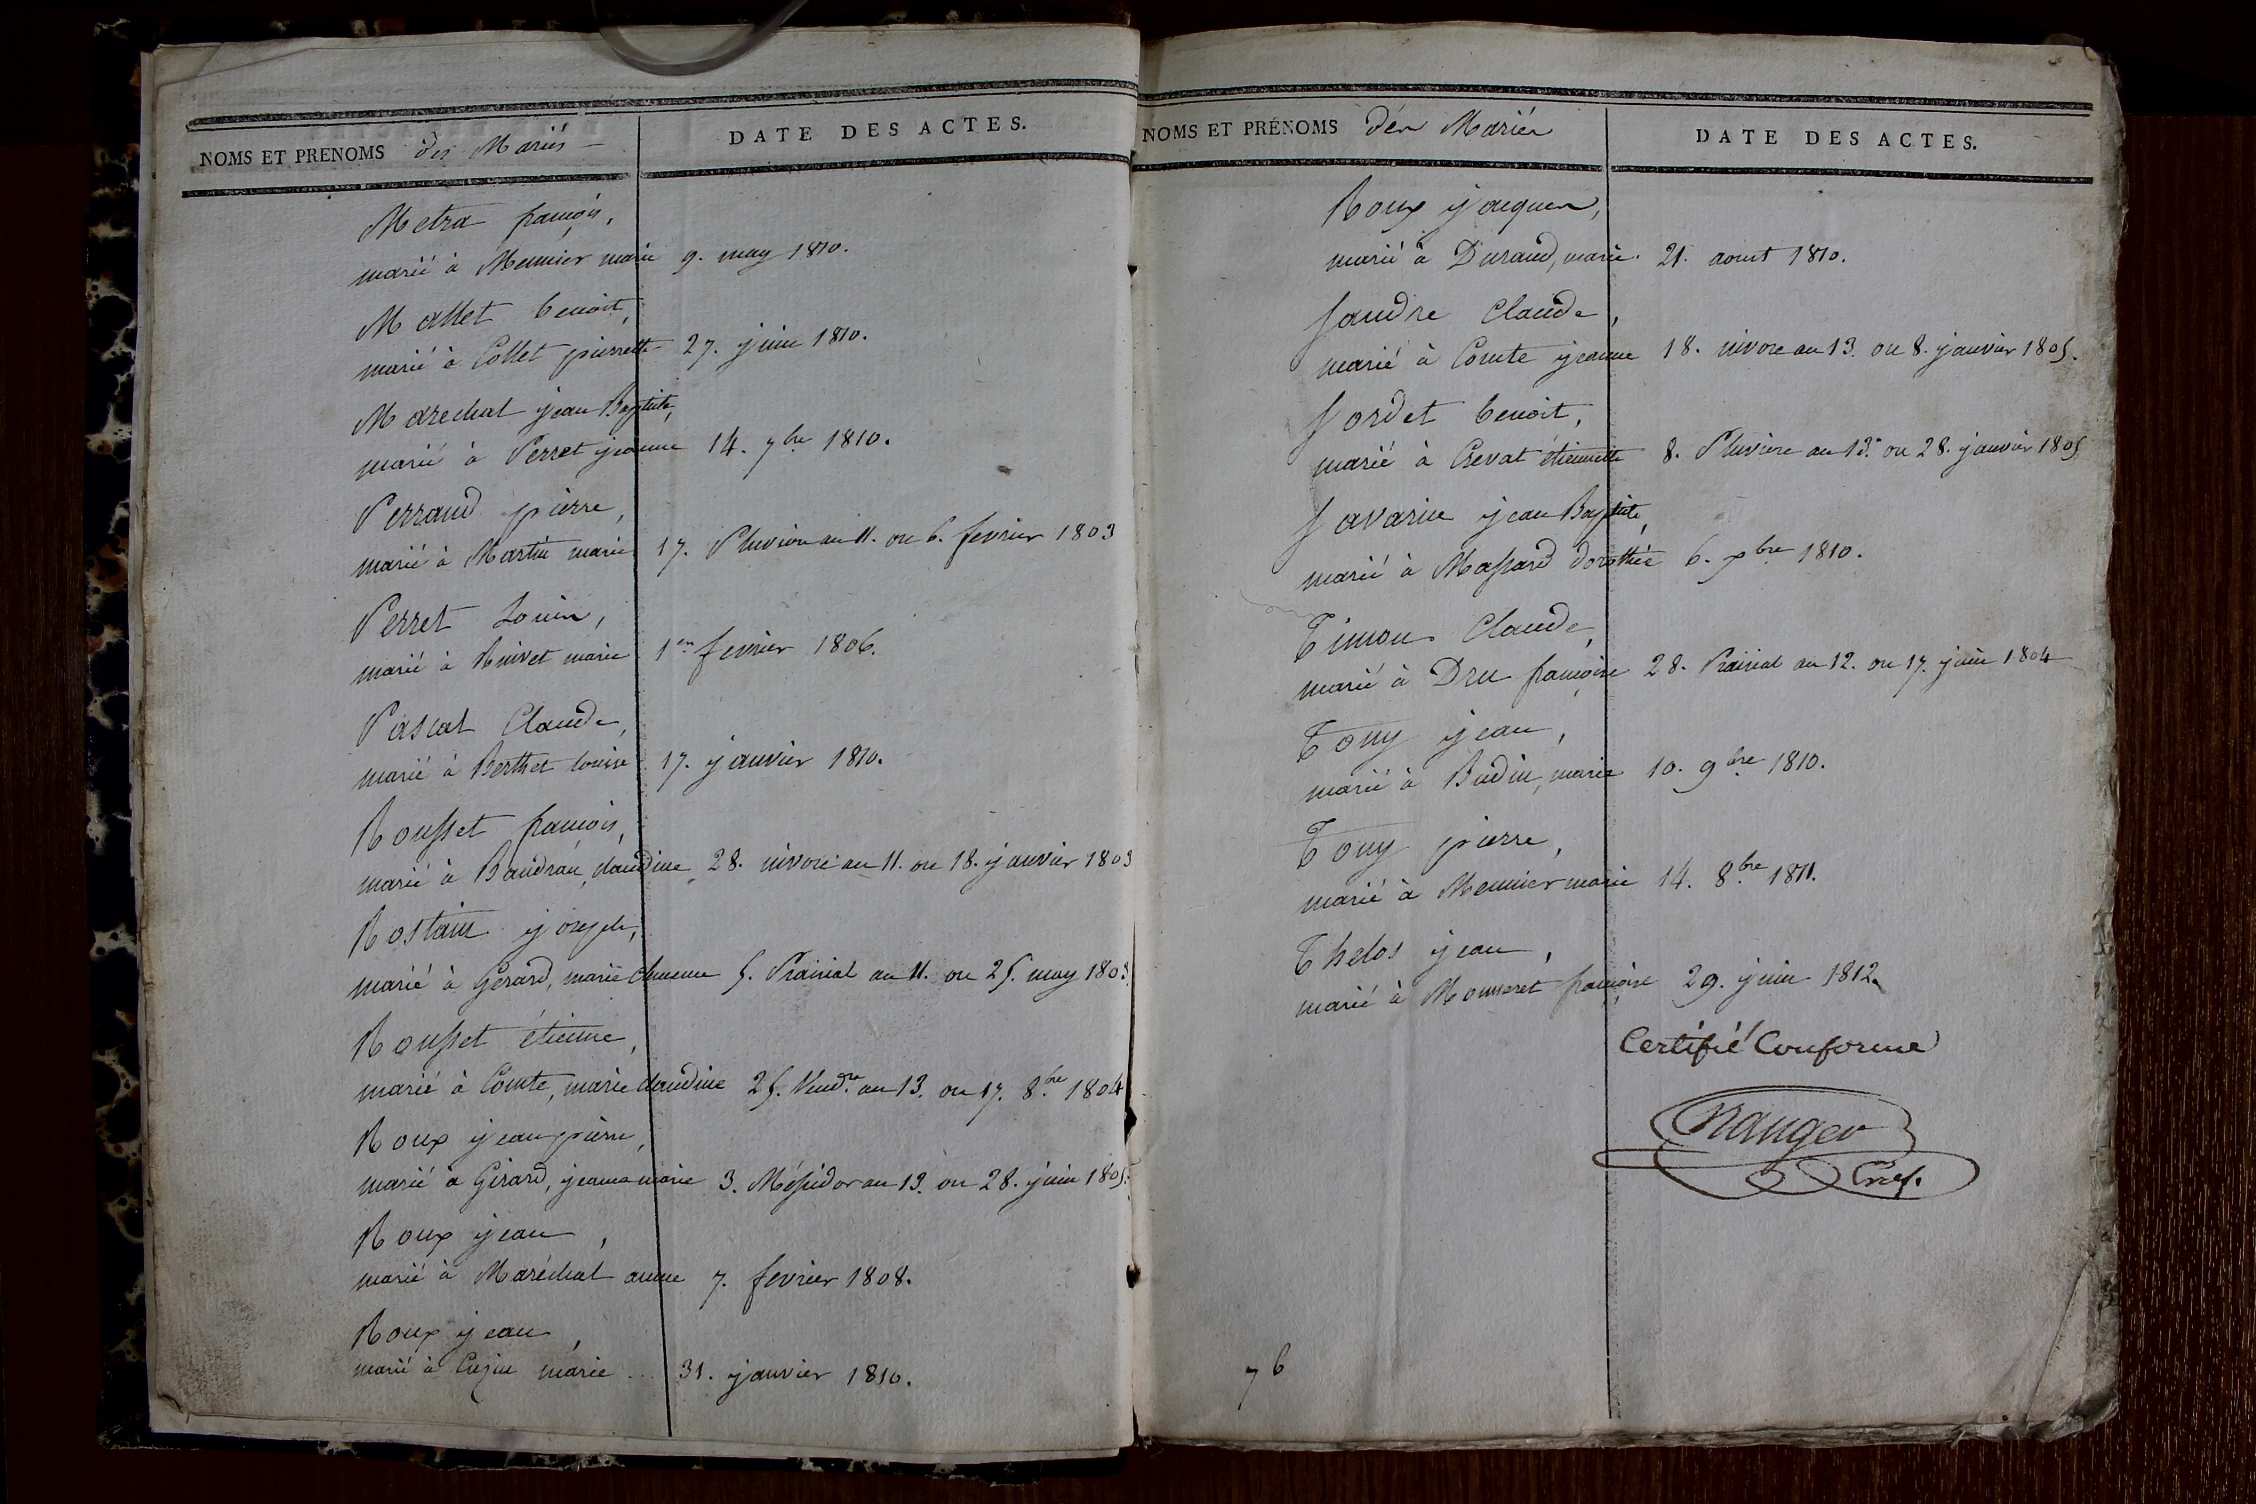 NOMS ET PRENOMS des Mariés
DATE DES ACTES.
Metra françois,
marié à Meunier marie 9. may 1810.
Mallet benoit,
marié à Collet pierrette 27. juin 1810.
Marechal jean Baptiste,
marié à Perret jeanne 14. 7bre 1810.
Perraud pierre,
marié à Martin marie 17. Pluviose an 11. ou 6. fevrier 1803
Perret Louis,
marié à Ruivet marie 1er fevrier 1806.
Pascal Claude,
marié à Berthet louise 17. janvier 1810.
Rousset françois,
marié à Baudran, claudine 28. nivose an 11. ou 18. janvier 1803
Rostain joseph,
marié à Gerard, marie 5. Prairial an 11. ou 25. may 1803.
Rousset étienne,
marié à Comte, marie claudine 25. Vendre. an 13. ou 17. 8bre 1804
Roux jean pierre,
marié à Girard, jeanne marie 3. Méssidor an 13. ou 28. juin 1805.
Roux jean,
marié à Maréchal anne 7. fevrier 1808.
Roux jean,
marié à marie 31. janvier 1810.
NOMS ET PRÉNOMS des Mariés
DATE DES ACTES.
Roux jacques,
marié à Durand, marie. 21. aout 1810.
Sandre Claude,
marié à Comte jeanne 18. nivose an 13. ou 8. janvier 1805.
Sordet benoit,
marié à Crevat étiennette 8. Pluviose an 13. ou 28. janvier 1805
Savarin jean Baptiste,
marié à Massard dorothée 6. xbre 1810.
Timon Claude,
marié à Dru françoise 28. Prairial an 12. ou 17. juin 1804
Tony jean,
marié à Badin, marie 10. 9bre 1810.
Tony pierre,
marié à Meunier marie 14. 8bre 1811.
Thelos jean,
marié à Mousseret françoise 29. juin 1812.
Certifié Conforme
76